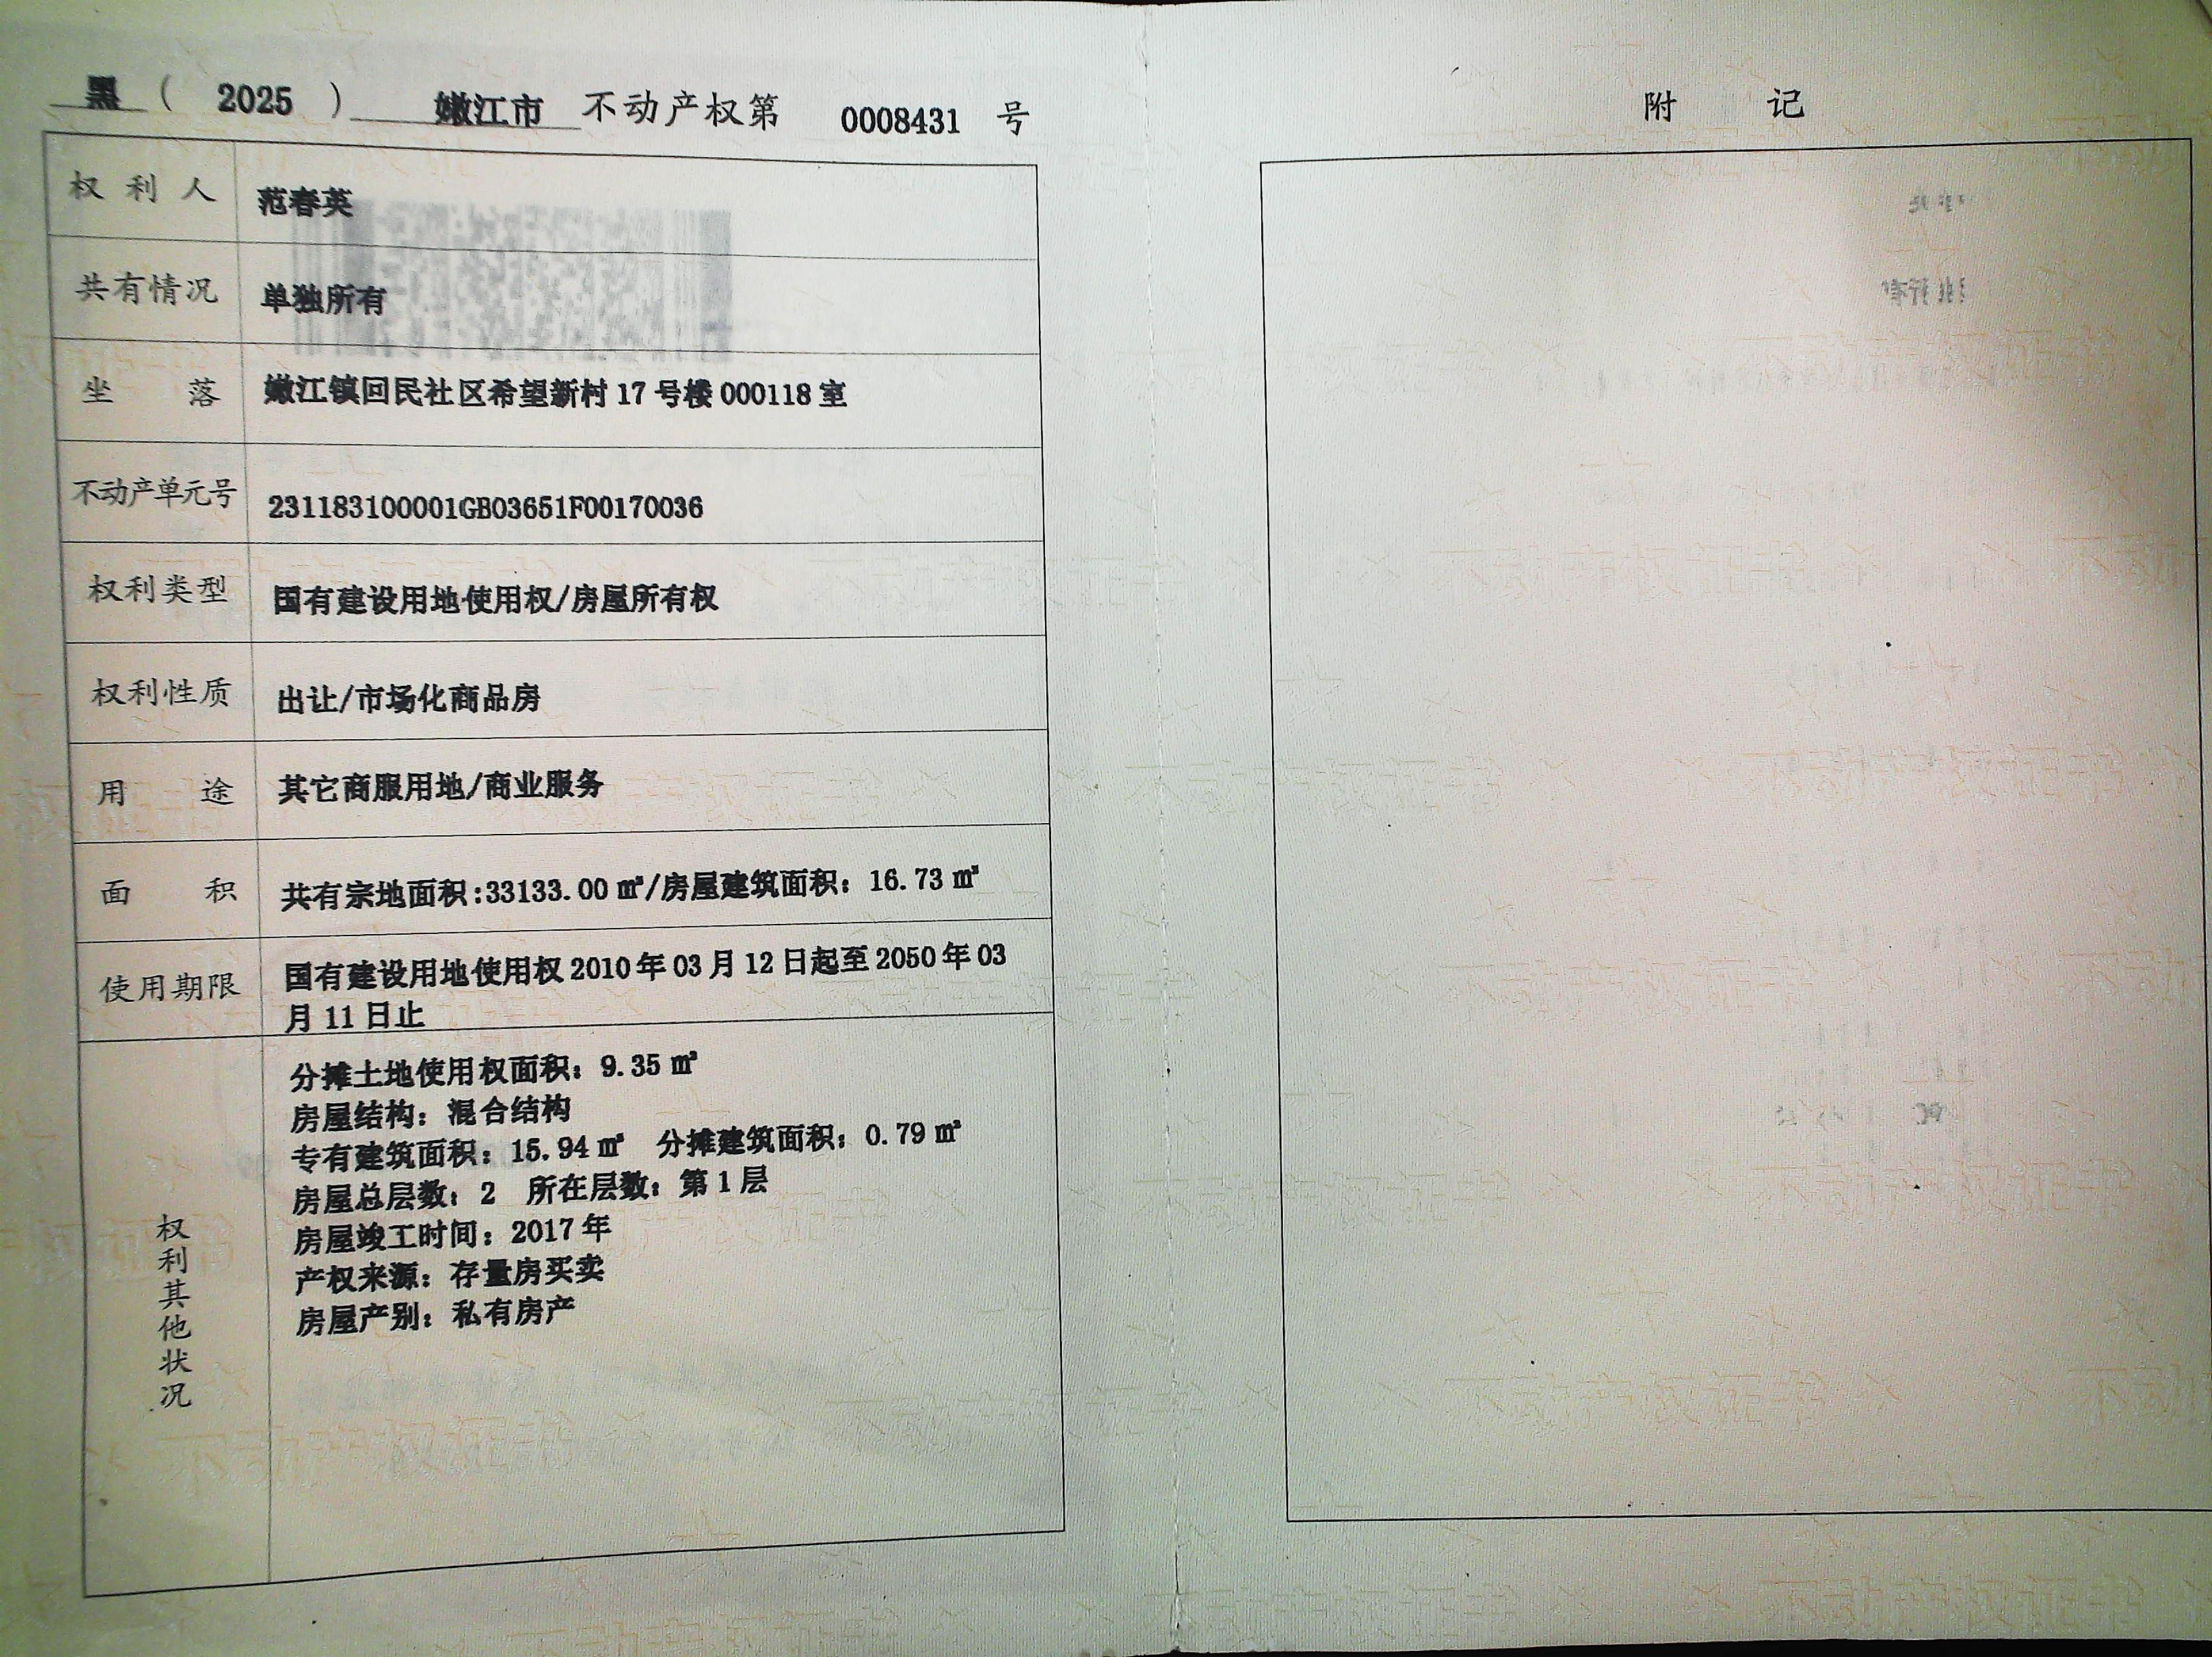 黑 （ 2025 ） 嫩江市 不动产权第 0008431 号
权利人 范春英
共有情况 单独所有
坐落 嫩江镇回民社区希望新村 17 号楼 000118 室
不动产单元号 231183100001GB03651F00170036
权利类型 国有建设用地使用权/房屋所有权
权利性质 出让/市场化商品房
用途 其它商服用地/商业服务
面积 共有宗地面积:33133.00 ㎡/房屋建筑面积：16.73 ㎡
使用期限 国有建设用地使用权 2010 年 03 月 12 日起至 2050 年 03
月 11 日止
权利其他状况
分摊土地使用权面积：9.35 ㎡
房屋结构：混合结构
专有建筑面积：15.94 ㎡ 分摊建筑面积：0.79 ㎡
房屋总层数：2 所在层数：第 1 层
房屋竣工时间：2017 年
产权来源：存量房买卖
房屋产别：私有房产
附记